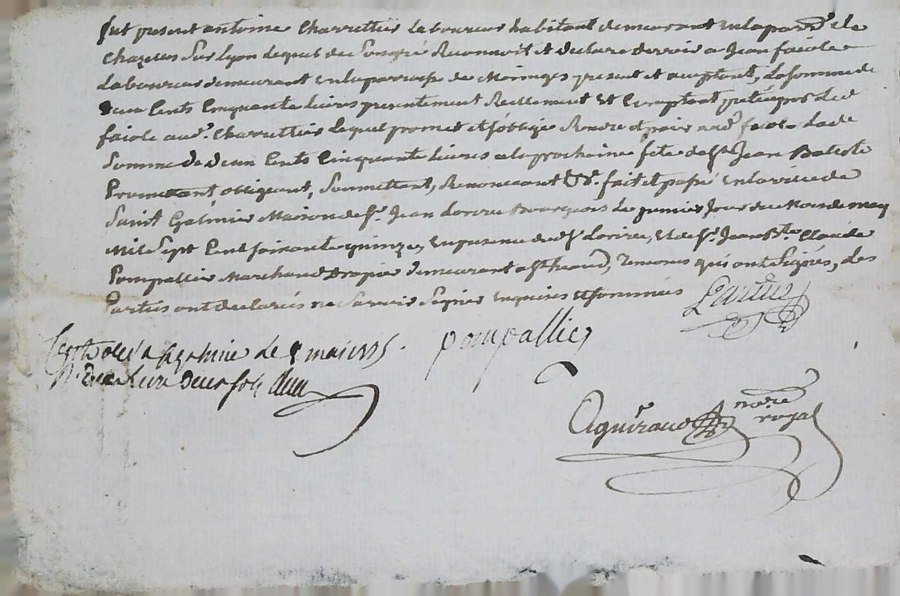 fut present antoine Charrettier Laboureur habitant demeurant en la parr.se de
Chazelles Sur Lyon lequel de Son gré Reconnoit et declare devoir a Jean faiole
Laboureur demeurant en la parroisse de Maringes present et acceptant, La Somme de
deux Cents Cinquante Livres presentement Reellement et Comptant
faiole aud. Charrettier Lequel promet et s'oblige Rendre et paier aud. faiole lad.e
Somme de deux Cents Cinquante Livres a la prochaine fete de St. Jean Batiste
Promettant, obligeant, Soumettant, Renonceant &c. fait et passé en la ville de
Saint Galmier Maison de Sr. Jean Bourgeois Le premier Jour du Mois de may
Mil Sept Cent Soixante quinze, en presence dud. Sr. et de Sr. Jean Bte. Claude
Pompallier Marchand Drapier demeurant a St. heand, Temoins qui ont Signés, Les
Parties ont declarés ne Scavoir Signer enquises et Sommées
pompallier
Controllé a St galmier le 8 mai 1775.
Aguiraud nore. royal